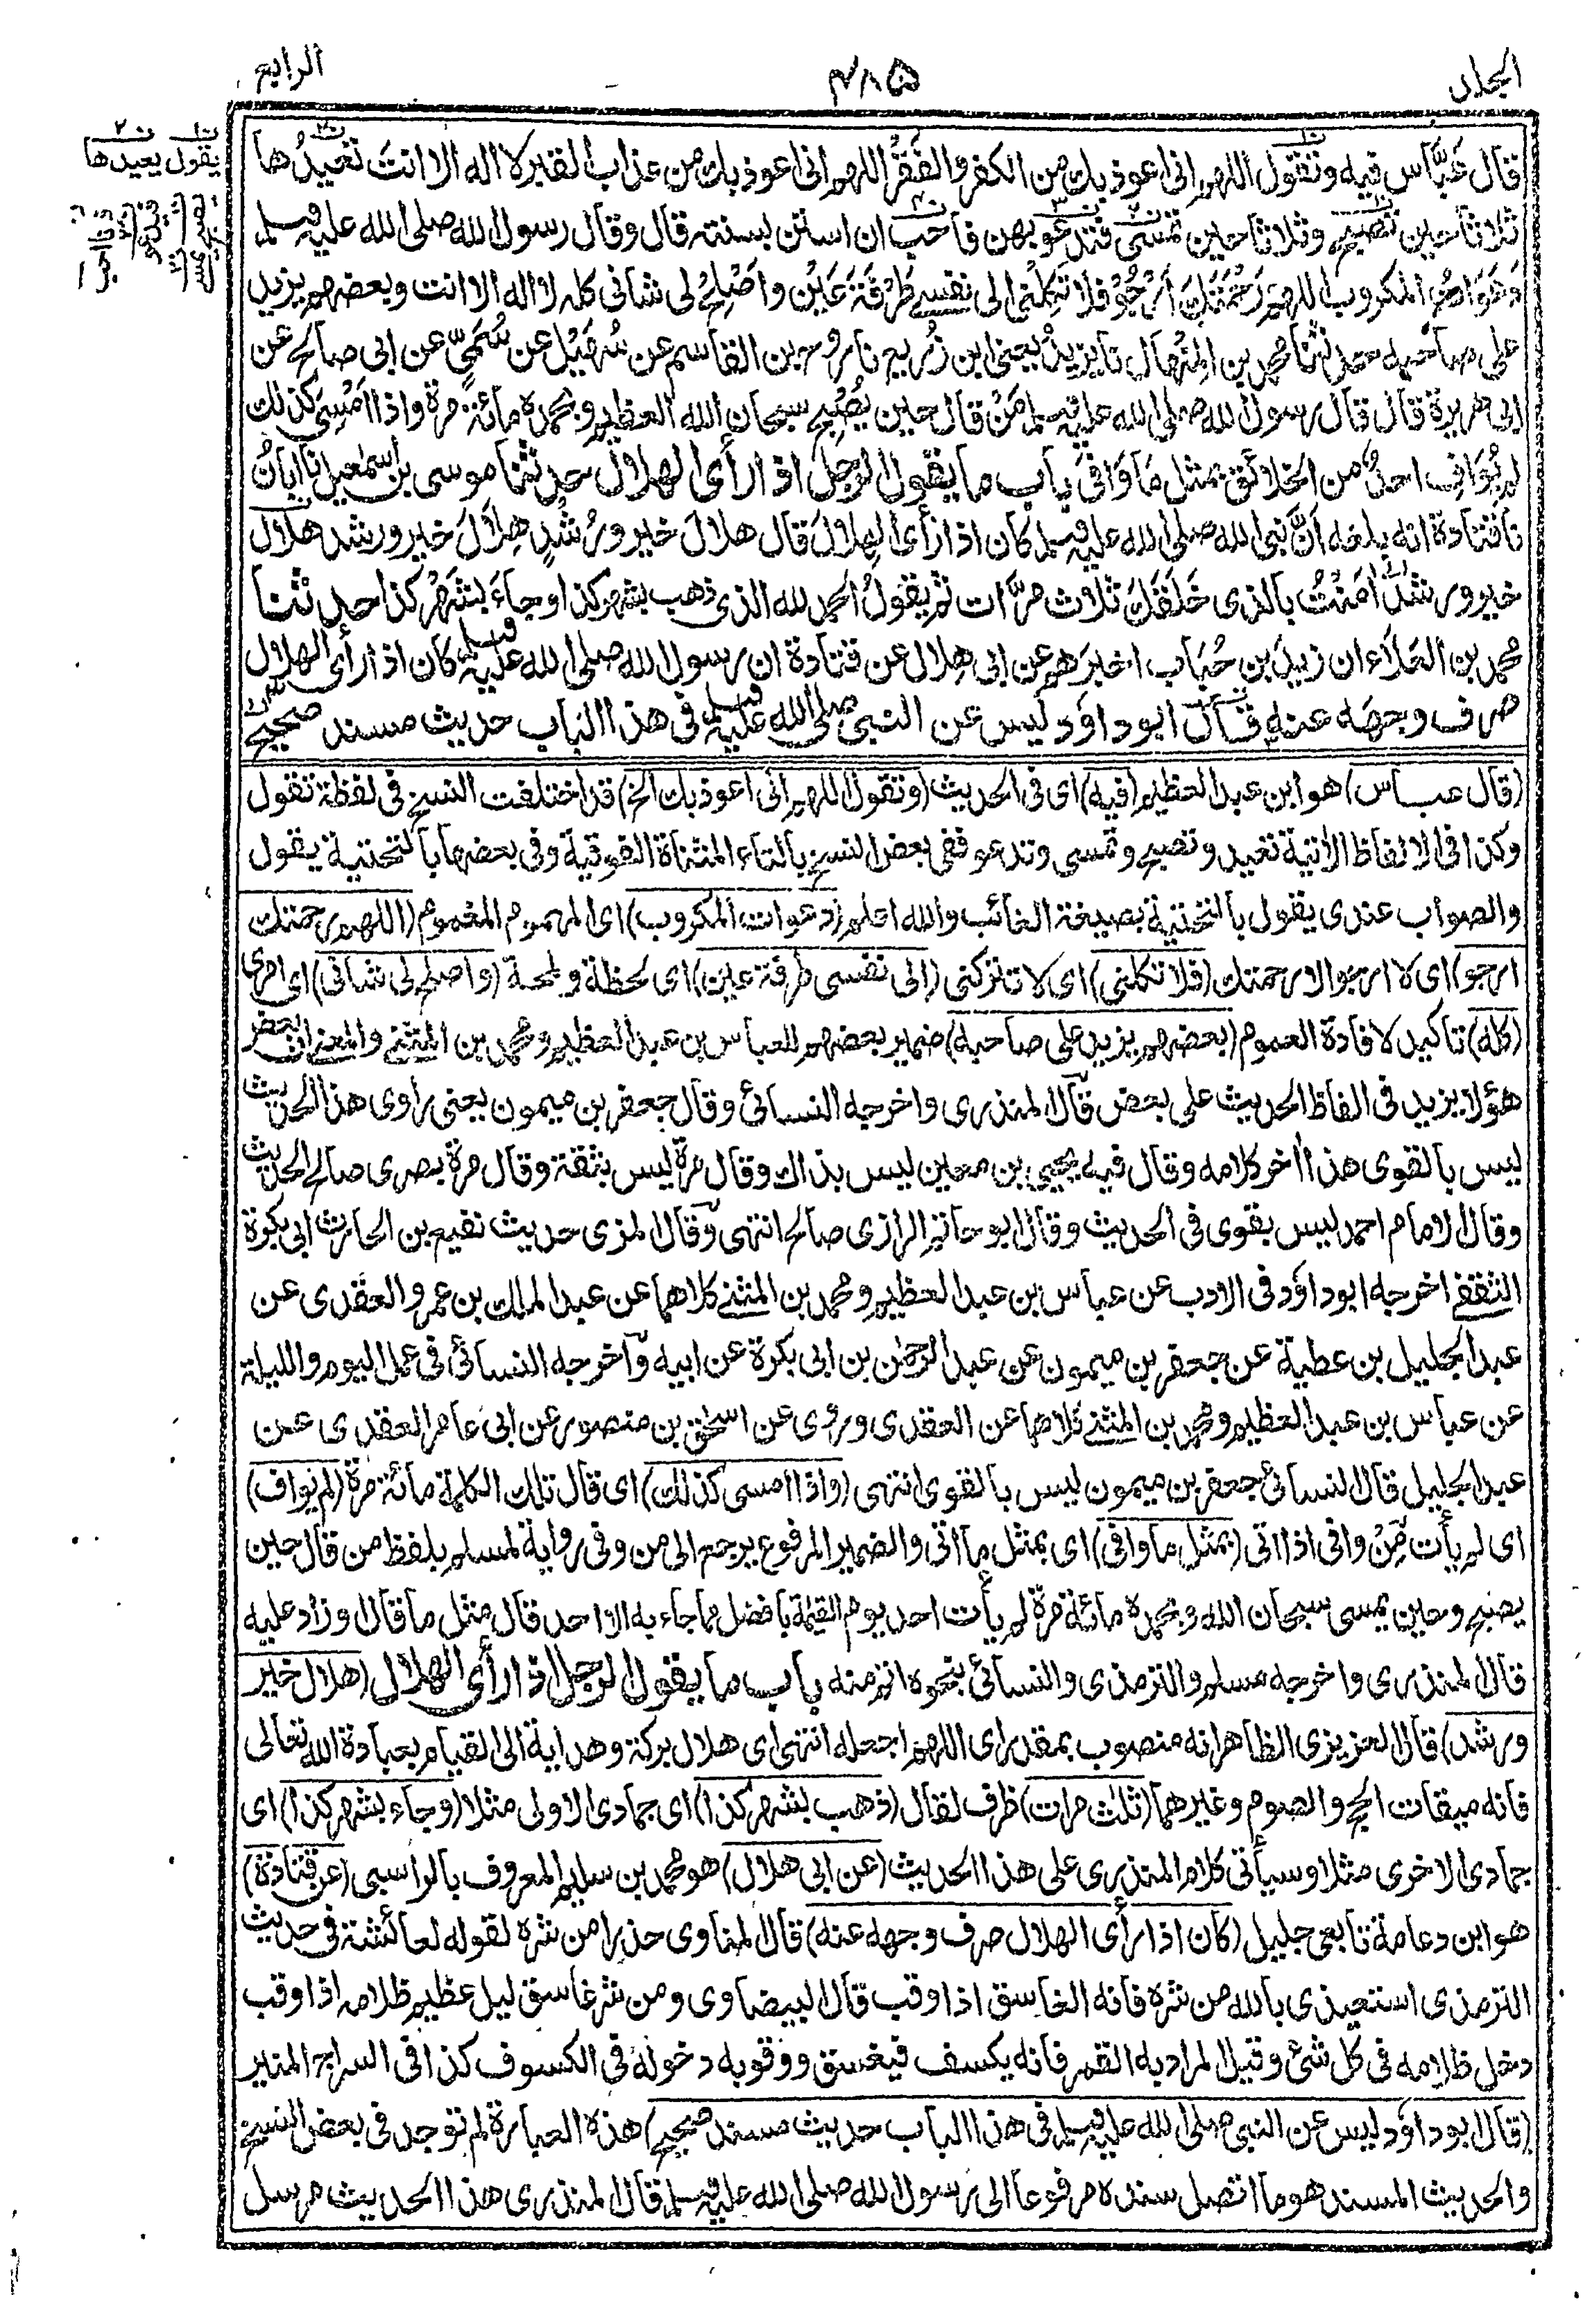 المجلد
٤٨٥
الرابع
قال عَبَّاس فيه وتقول اللهم انى اعوذ بك من الكفر والفَقْر اللهم انى اعوذ بك من عذاب القبر لا اله الا انت تُعيدُها
ثلاثا حين تصبح وثلاثا حين تمسى فتدعو بهن فاحب ان استن بسنته قال وقال رسول الله صلى الله عليه وسلم
دَعَوَاتُ المكروب اللهم رَحْمَتَكَ أَرْجُوْ فلا تَكِلْنِىْ الى نفسى طَرْفَةَ عَيْنٍ واَصْلِحْ لى شانى كله لا اله الا انت وبعضهم يزيد
على صاحبه حدثنا محمد بن المِنْهال نا يزيد يعنى ابن زُرَيع نا روح بن القاسم عن سُهَيْل عن سُمَىٍّ عن ابى صالح عن
ابى هريرة قال قال رسول الله صلى الله عليه وسلم مَنْ قال حين يُصْبِح سبحان الله العظيم وبحمده مائة مرة واذا اَمْسى كذلك
لم يُوَافِ احدٌ من الخلائق بمثل مَا وَافَى باب ما يقول الرجل اذا رأى الهلال حدثنا موسى بن اسمٰعيل نا ابانُ
نا قتادة انه بلغه اَنَّ نبى الله صلى الله عليه وسلم كان اذا رأى الهِلالَ قال هلالَ خيرٍ ورُشْدٍ هِلالَ خيرٍ ورشدٍ هلال
خير ورشد اٰمَنْتُ بالذى خَلَقَكَ ثلاث مرَّات ثم يقولُ الحمد لله الذى ذهب بشهر كذا وجاءَ بشَهْر كذا حدثنا
محمد بن العَلَاءِ ان زيدَ بن حُبَاب اخبرَهم عن ابى هِلال عن قتادة ان رسول الله صلى الله عليه وسلم كان اذا رأى الهلال
صرف وجهَه عنه قال ابو داؤد ليس عن النبى صلى الله عليه وسلم فى هذا الباب حديث مسند صحيح
(قال عباس) هو ابن عبد العظيم (فيه) اى فى الحديث (وتقول اللهم انى اعوذ بك الخ) قد اختلفت النسخ فى لفظة تقول
وكذا فى الالفاظ الاٰتية تعيد وتصبح وتمسى وتدعو ففى بعض النسخ بالتاء المثناة الفوقية وفى بعضها بالتحتية يقول
والصواب عندى يقول بالتحتية بصيغة الغائب والله اعلم (دعوات المكروب) اى المهموم المغموم (اللهم رحمتك
ارجو) اى لا ارجو الا رحمتك (فلا تكلنى) اى لا تتركنى (الى نفسى طرفة عين) اى لحظة ولمحة (واصلح لى شانى) اى امرى
(كله) تاكيد لافادة العموم (بعضهم يزيد على صاحبه) ضمير بعضهم للعباس بن عبد العظيم ومحمد بن المثنى والمعنى ان بعض
هؤلا يزيد فى الفاظ الحديث على بعض قال المنذرى واخرجه النسائى وقال جعفر بن ميمون يعنى راوى هذا الحديث
ليس بالقوى هذا اٰخر كلامه وقال فيه يحيى بن معين ليس بذاك وقال مرة ليس بثقة وقال مرة بصرى صالح الحديث
وقال الامام احمد ليس بقوى فى الحديث وقال ابو حاتم الرازى صالح انتهى وقال المزى حديث نفيع بن الحارث ابى بكرة
الثقفى اخرجه ابو داؤد فى الادب عن عباس بن عبد العظيم ومحمد بن المثنى كلاهما عن عبد الملك بن عمرو العقدى عن
عبد الجليل بن عطية عن جعفر بن ميمون عن عبد الرحمٰن بن ابى بكرة عن ابيه واخرجه النسائى فى عمل اليوم والليلة
عن عباس بن عبد العظيم ومحمد بن المثنى كلاهما عن العقدى وروى عن اسحٰق بن منصور عن ابى عامر العقدى عن
عبد الجليل قال النسائى جعفر بن ميمون ليس بالقوى انتهى (واذا امسى كذلك) اى قال تلك الكلمة مائة مرة (لم يواف)
اى لم يأت مِنْ وافى اذا اتى (بمثل ما وافى) اى بمثل ما اتى والضمير المرفوع يرجع الى من وفى رواية لمسلم بلفظ من قال حين
يصبح وحين يمسى سبحان الله وبحمده مائة مرة لم يأت احد يوم القيٰمة بافضل مما جاء به الا احد قال مثل ما قال او زاد عليه
قال المنذرى واخرجه مسلم والترمذى والنسائى بنحوه اتم منه باب ما يقول الرجل اذا رأى الهلال (هلال خير
ورشد) قال العزيزى الظاهر انه منصوب بمقدر اى اللهم اجعله انتهى اى هلال بركة وهداية الى القيام بعبادة الله تعالى
فانه ميقات الحج والصوم وغيرهما (ثلٰث مرات) ظرف لقال (ذهب بشهر كذا) اى جمادى الاولى مثلا (وجاء بشهر كذا) اى
جمادى الاخرى مثلا وسيأتى كلام المنذرى على هذا الحديث (عن ابى هلال) هو محمد بن سليم المعروف بالراسبى (عن قتادة)
هو ابن دعامة تابعى جليل (كان اذا رأى الهلال صرف وجهه عنه) قال المناوى حذرا من شره لقوله لعائشة فى حديث
الترمذى استعيذى بالله من شره فانه الغاسق اذا وقب قال البيضاوى ومن شر غاسق ليل عظيم ظلامه اذا وقب
دخل ظلامه فى كل شئ وقيل المراد به القمر فانه يكسف فيغسق ووقوبه دخوله فى الكسوف كذا فى السراج المنير
(قال ابو داؤد ليس عن النبى صلى الله عليه وسلم فى هذا الباب حديث مسند صحيح) هذه العبارة لم توجد فى بعض النسخ
والحديث المسند هو ما اتصل سنده مرفوعا الى رسول الله صلى الله عليه وسلم قال المنذرى هذا الحديث مرسل
ن١ ن٢
يقول يعيدها